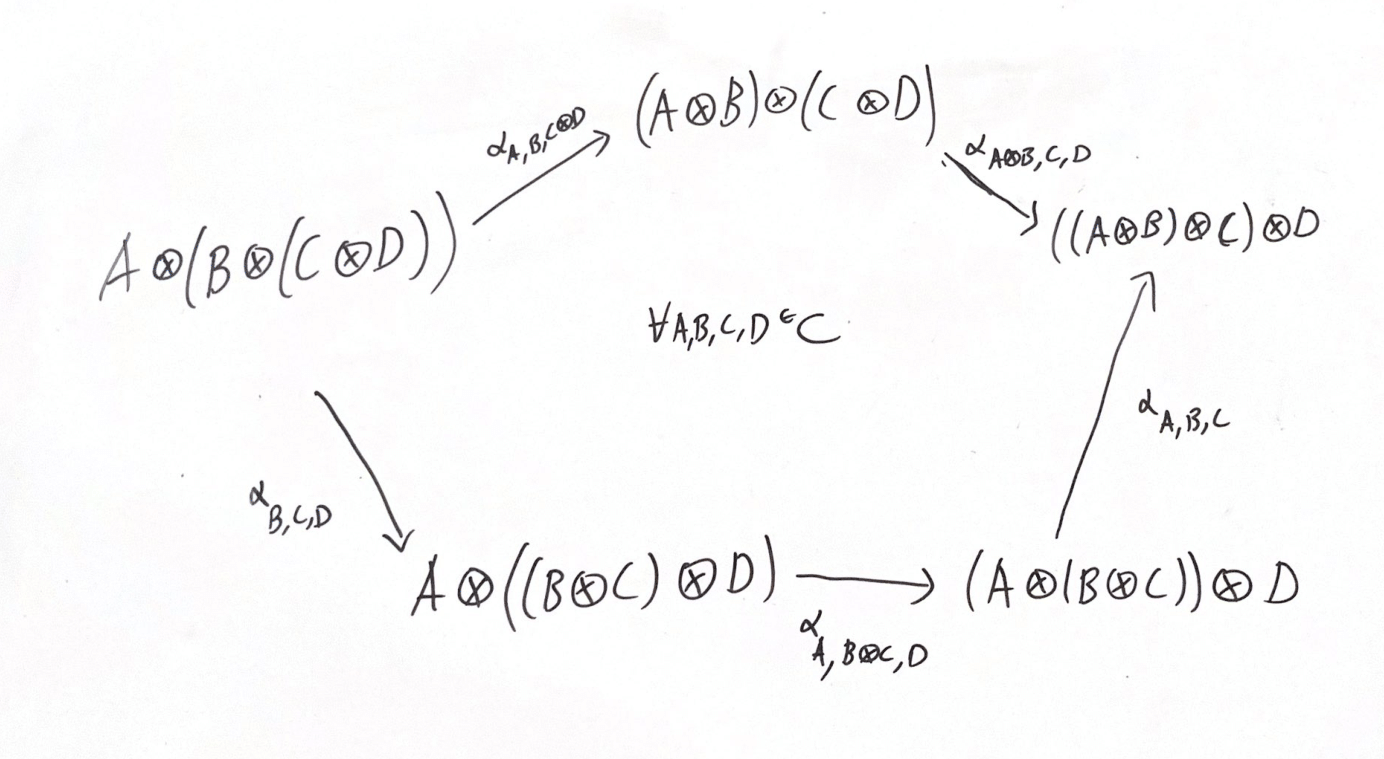 (A⊗B)⊗(C⊗D)
α_{A,B,C⊗D}
α_{A⊗B,C,D}
A⊗(B⊗(C⊗D))
((A⊗B)⊗C)⊗D
∀A,B,C,D∈C
α_{A,B,C}
α_{B,C,D}
A⊗((B⊗C)⊗D)
(A⊗(B⊗C))⊗D
α_{A,B⊗C,D}